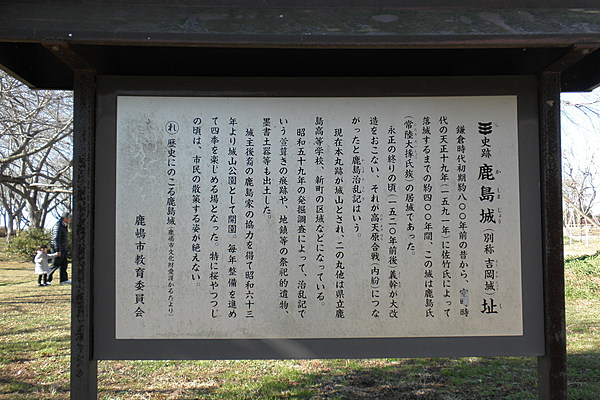 史跡 鹿島城(別称吉岡城)址
かしまじょう
鎌倉時代初期約八〇〇年前の昔から、室町時
代の天正十九年(一五九一年)に佐竹氏によって
落城するまでの約四〇〇年間、この城は鹿島氏
(常陸大掾氏族)の居城であった。
永正の終りの頃(一五二〇年前後)義幹が大改
造をおこない、それが高天原合戦(内紛)につな
がったと鹿島治乱記はいう。
現在本丸跡が城山とされ、二の丸他は県立鹿
島高等学校、新町の区域などになっている。
昭和五十九年の発掘調査によって、治乱記で
いう萱葺きの痕跡や、地鎮等の祭祀的遺物、
墨書土器等も出土した。
城主後裔の鹿島家の協力を得て昭和六十三
年より城山公園として開園、毎年整備を進め
て四季を楽しめる場となった。特に桜やつつじ
の頃は、市民の散策する姿が絶えない。
(れ)歴史にのこる鹿島城(鹿嶋市文化財愛護かるたより)
鹿嶋市教育委員会